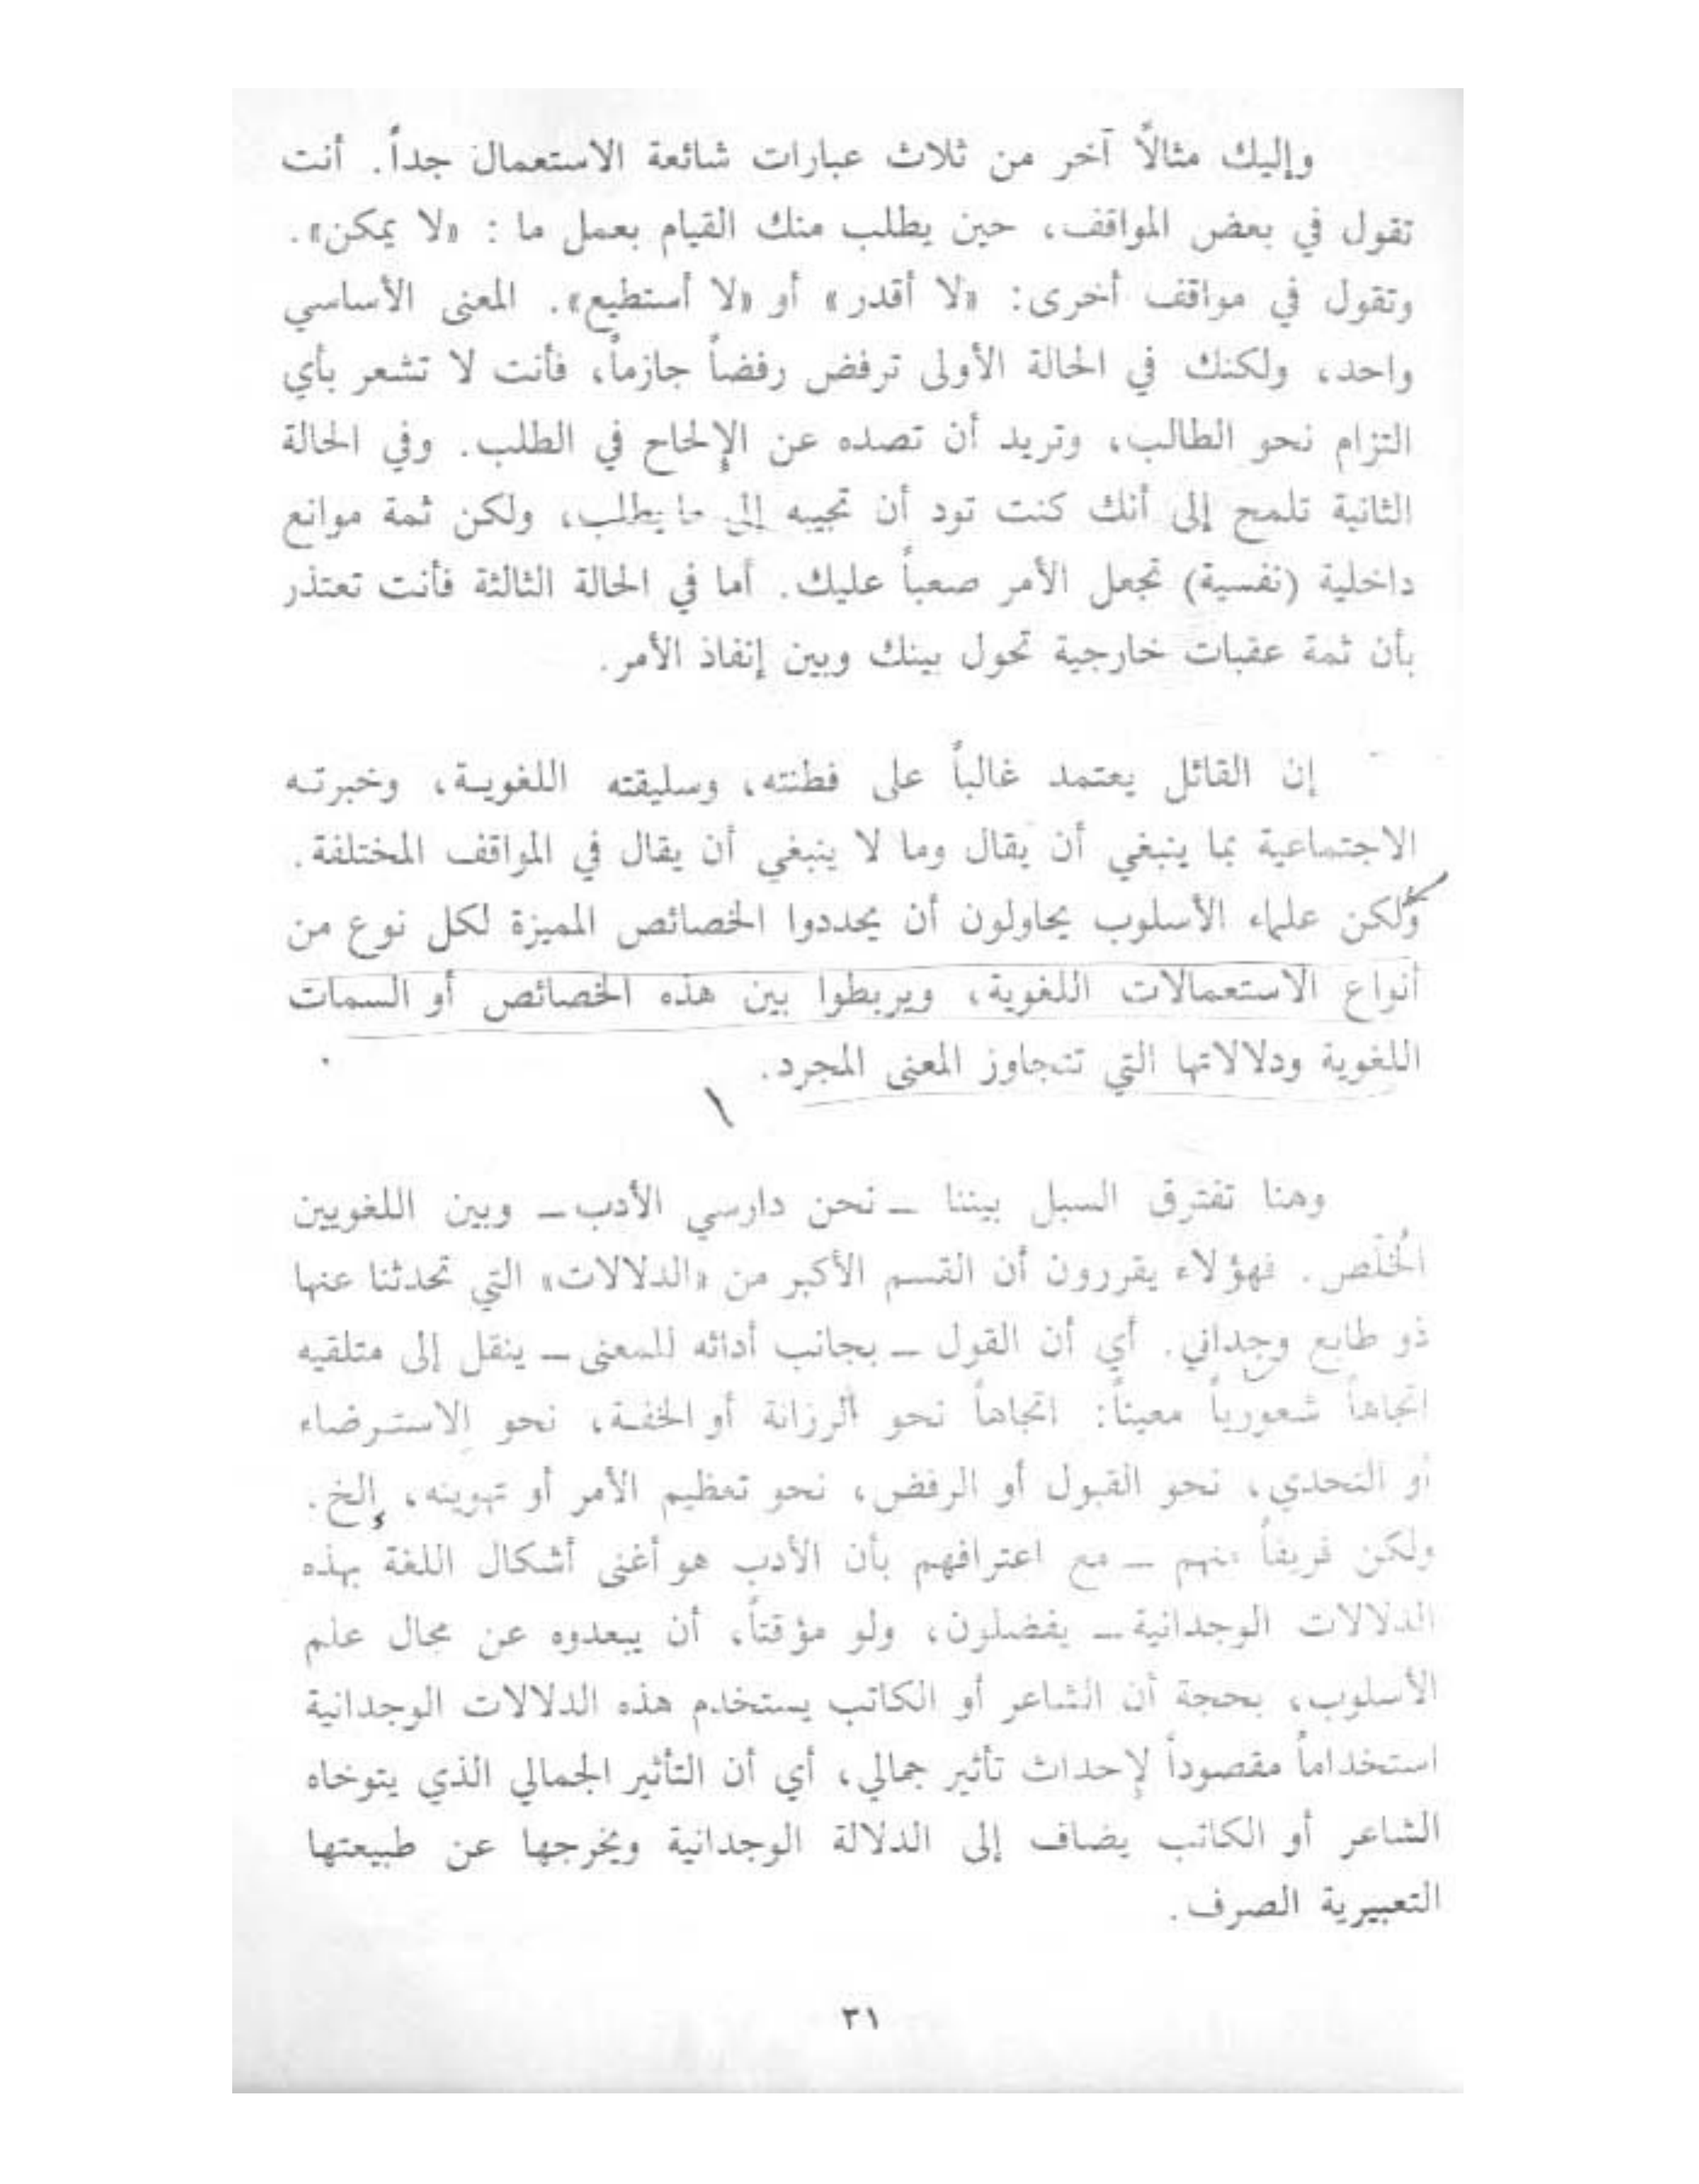 وإليك مثالًا آخر من ثلاث عبارات شائعة الاستعمال جداً. أنت
تقول في بعض المواقف، حين يطلب منك القيام بعمل ما : «لا يمكن».
وتقول في مواقف أخرى: «لا أقدر» أو «لا أستطيع». المعنى الأساسي
واحد، ولكنك في الحالة الأولى ترفض رفضاً جازماً، فأنت لا تشعر بأي
التزام نحو الطالب، وتريد أن تصده عن الإلحاح في الطلب. وفي الحالة
الثانية تلمح إلى أنك كنت تود أن تجيبه إلى ما يطلب، ولكن ثمة موانع
داخلية (نفسية) تجعل الأمر صعباً عليك. أما في الحالة الثالثة فأنت تعتذر
بأن ثمة عقبات خارجية تحول بينك وبين إنفاذ الأمر.
إن القائل يعتمد غالباً على فطنته، وسليقته اللغوية، وخبرته
الاجتماعية بما ينبغي أن يقال وما لا ينبغي أن يقال في المواقف المختلفة.
ولكن علماء الأسلوب يحاولون أن يحددوا الخصائص المميزة لكل نوع من
أنواع الاستعمالات اللغوية، ويربطوا بين هذه الخصائص أو السمات
اللغوية ودلالاتها التي تتجاوز المعنى المجرد.
وهنا تفترق السبل بيننا ــ نحن دارسي الأدب ــ وبين اللغويين
الخُلَّص. فهؤلاء يقررون أن القسم الأكبر من «الدلالات» التي تحدثنا عنها
ذو طابع وجداني. أي أن القول ــ بجانب أدائه للمعنى ــ ينقل إلى متلقيه
اتجاهاً شعورياً معيناً: اتجاهاً نحو الرزانة أو الخفة، نحو الاسترضاء
أو التحدي، نحو القبول أو الرفض، نحو تعظيم الأمر أو تهوينه، إلخ.
ولكن فريقاً منهم ــ مع اعترافهم بأن الأدب هو أغنى أشكال اللغة بهذه
الدلالات الوجدانية ــ يفضلون، ولو مؤقتاً، أن يبعدوه عن مجال علم
الأسلوب، بحجة أن الشاعر أو الكاتب يستخدم هذه الدلالات الوجدانية
استخداماً مقصوداً لإحداث تأثير جمالي، أي أن التأثير الجمالي الذي يتوخاه
الشاعر أو الكاتب يضاف إلى الدلالة الوجدانية ويخرجها عن طبيعتها
التعبيرية الصرف.
٣١